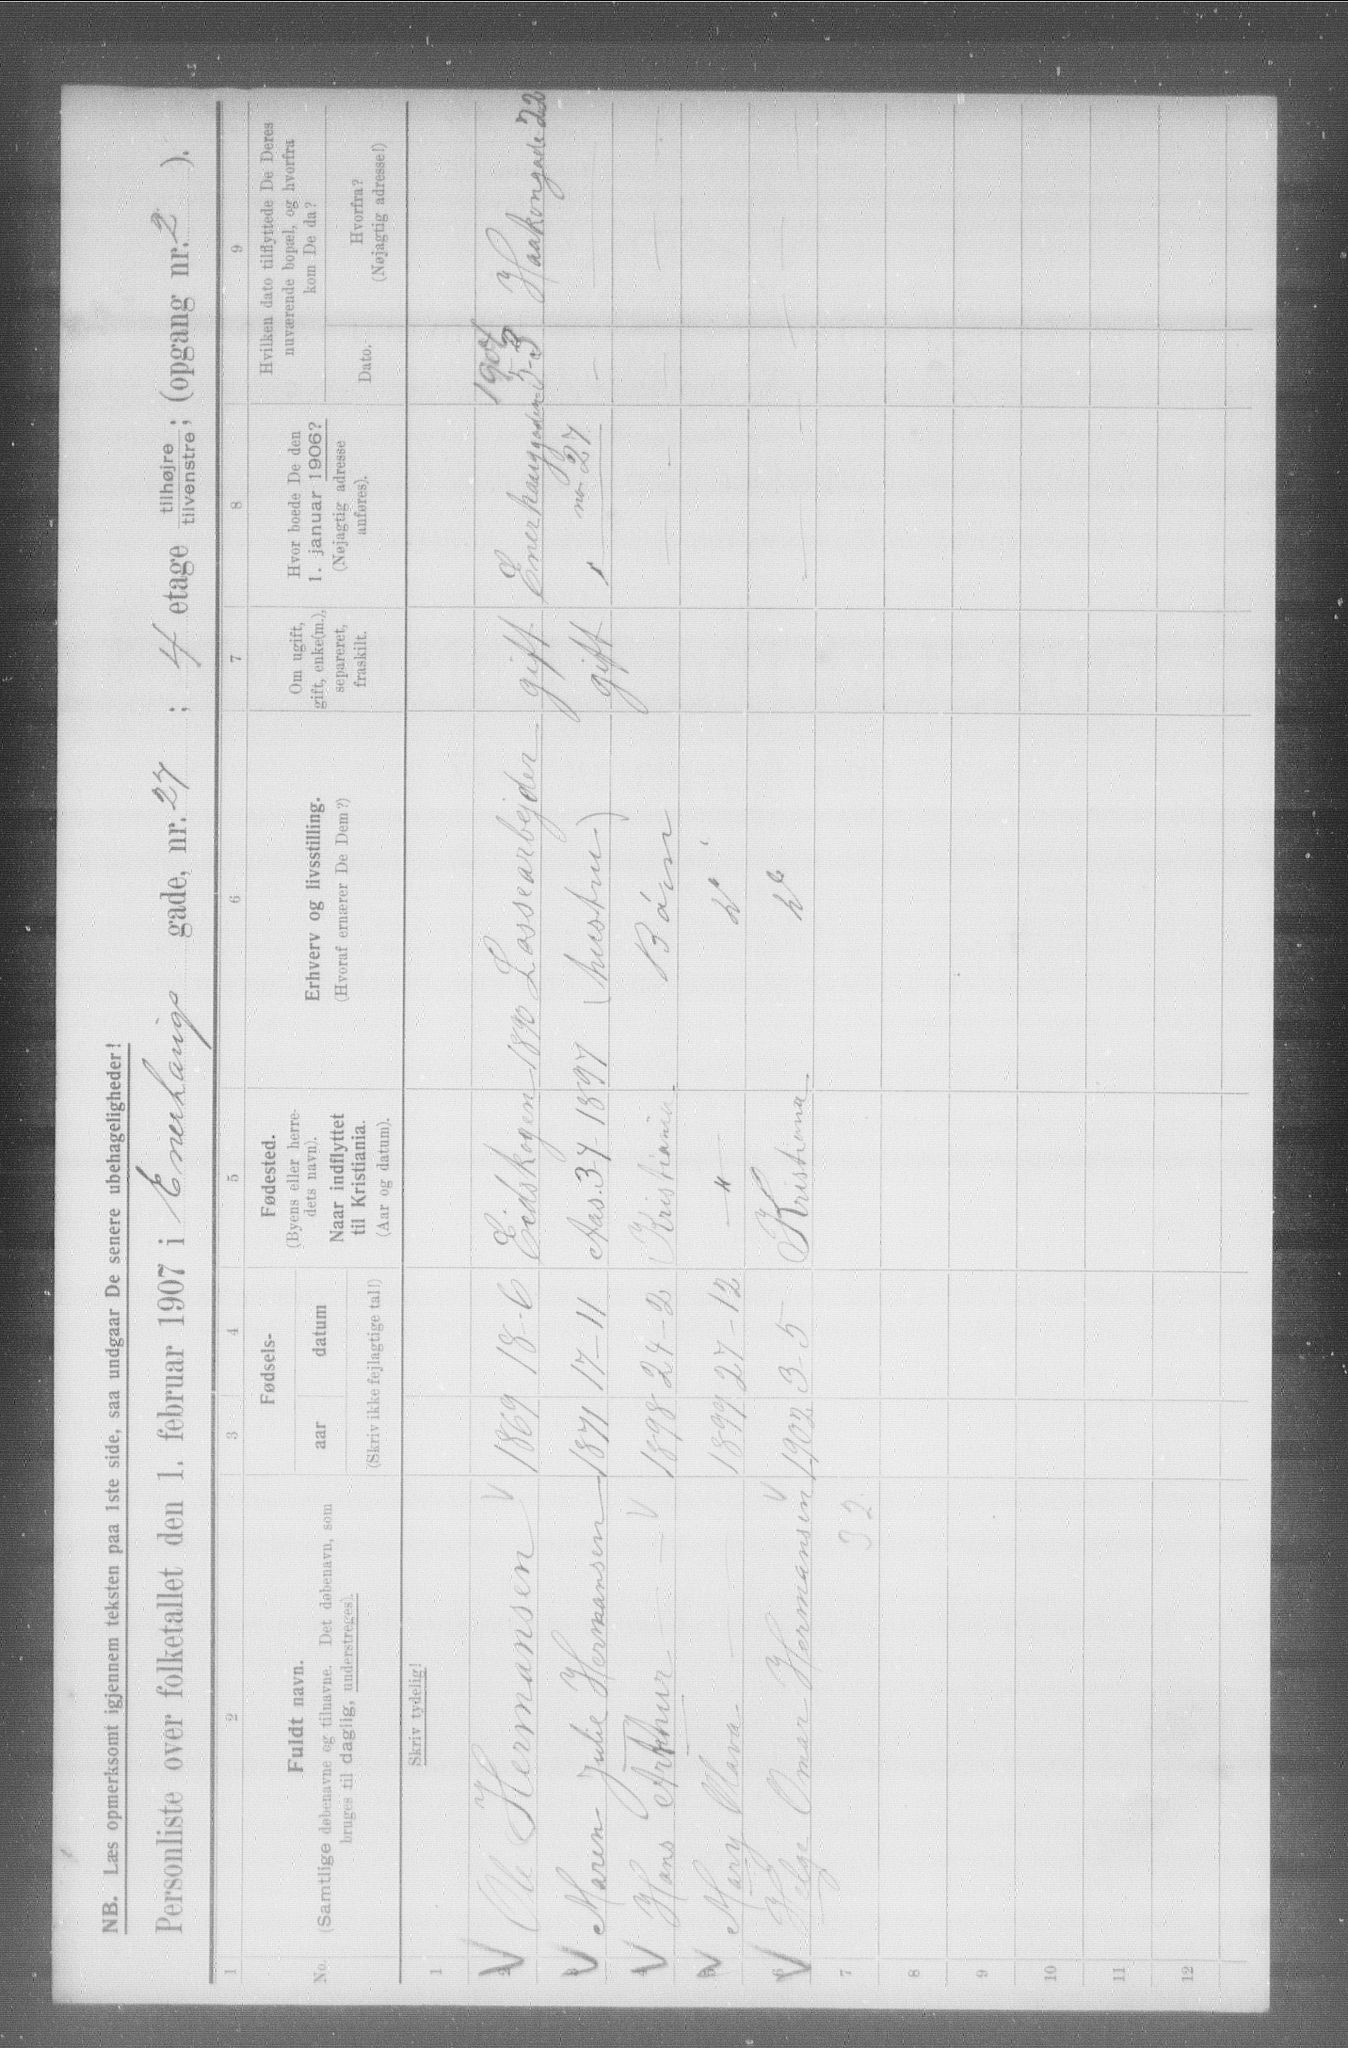 NB. Læs opmerksomt igjennem teksten paa 1ste side, saa undgaar De senere ubehageligheder!
Personliste over folketallet den 1. februar 1907 i Enerhaugs gade, nr. 27 ; 4 etage tilhøjre tilvenstre ; (opgang nr. 2 ).
1 2 3 4 5 6 7 8 9
No. Fuldt navn. (Samtlige døbenavne og tilnavne. Det døbenavn, som bruges til daglig, understreges).
Fødsels- aar datum (Skriv ikke fejlagtige tal!)
Fødested. (Byens eller herredets navn). Naar indflyttet til Kristiania. (Aar og datum).
Erhverv og livsstilling. (Hvoraf ernærer De Dem?)
Om ugift, gift, enke(m.), separeret, fraskilt.
Hvor boede De den 1. januar 1906? (Nøjagtig adresse anføres).
Hvilken dato tilflyttede De Deres nuværende bopæl, og hvorfra kom De da?
Dato. Hvorfra? (Nøjagtig adresse!)
Skriv tydelig!
1
2 Ole Hermansen 1869 18-6 Eidskogen 1890 Lossearbejder gift Enerhauggaden 1904 Haakongade 22
3 Maren Julie Hermansen 1871 17-11 Aas. 1897 (hustru) gift no 27
4 Hans Arthur 1898 24-2 Kristiania Børn
5 Mary Klara 1899 27-12 — " —
6 Helge Omar Hermansen 1902 3-5 Kristiania
7 3 2
8
9
10
11
12